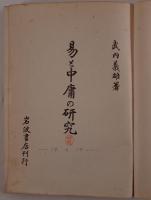 武内義雄著
易と中庸の研究
岩波書店刊行